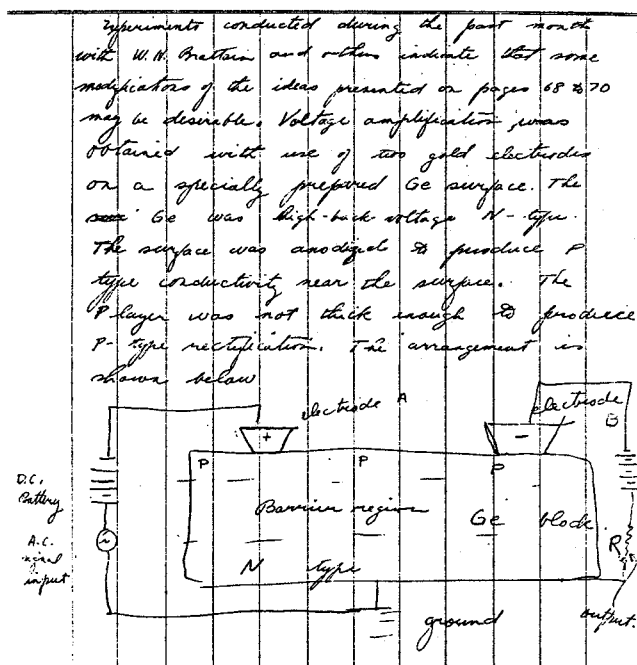 Experiments conducted during the past month
with W.N. Brattain and others indicate that some
modifications of the ideas presented on pages 68 to 70
may be desirable. Voltage amplification was
obtained with use of two gold electrodes
on a specially prepared Ge surface. The
Ge was high-back-voltage N-type.
The surface was anodized to produce P
type conductivity near the surface. The
P layer was not thick enough to produce
P-type rectification. The arrangement is
shown below
electrode A
electrode B
+
-
P P P
D.C. Battery
Barrier region
Ge block
A.C. signal input
N type
R
ground
output.